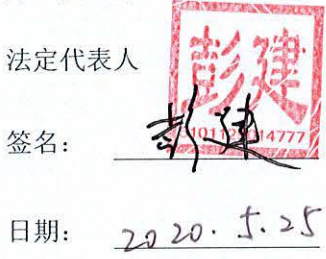 法定代表人
彭建
签名：彭建
日期：2020.5.25